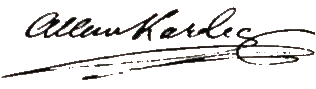 Allan Kardec